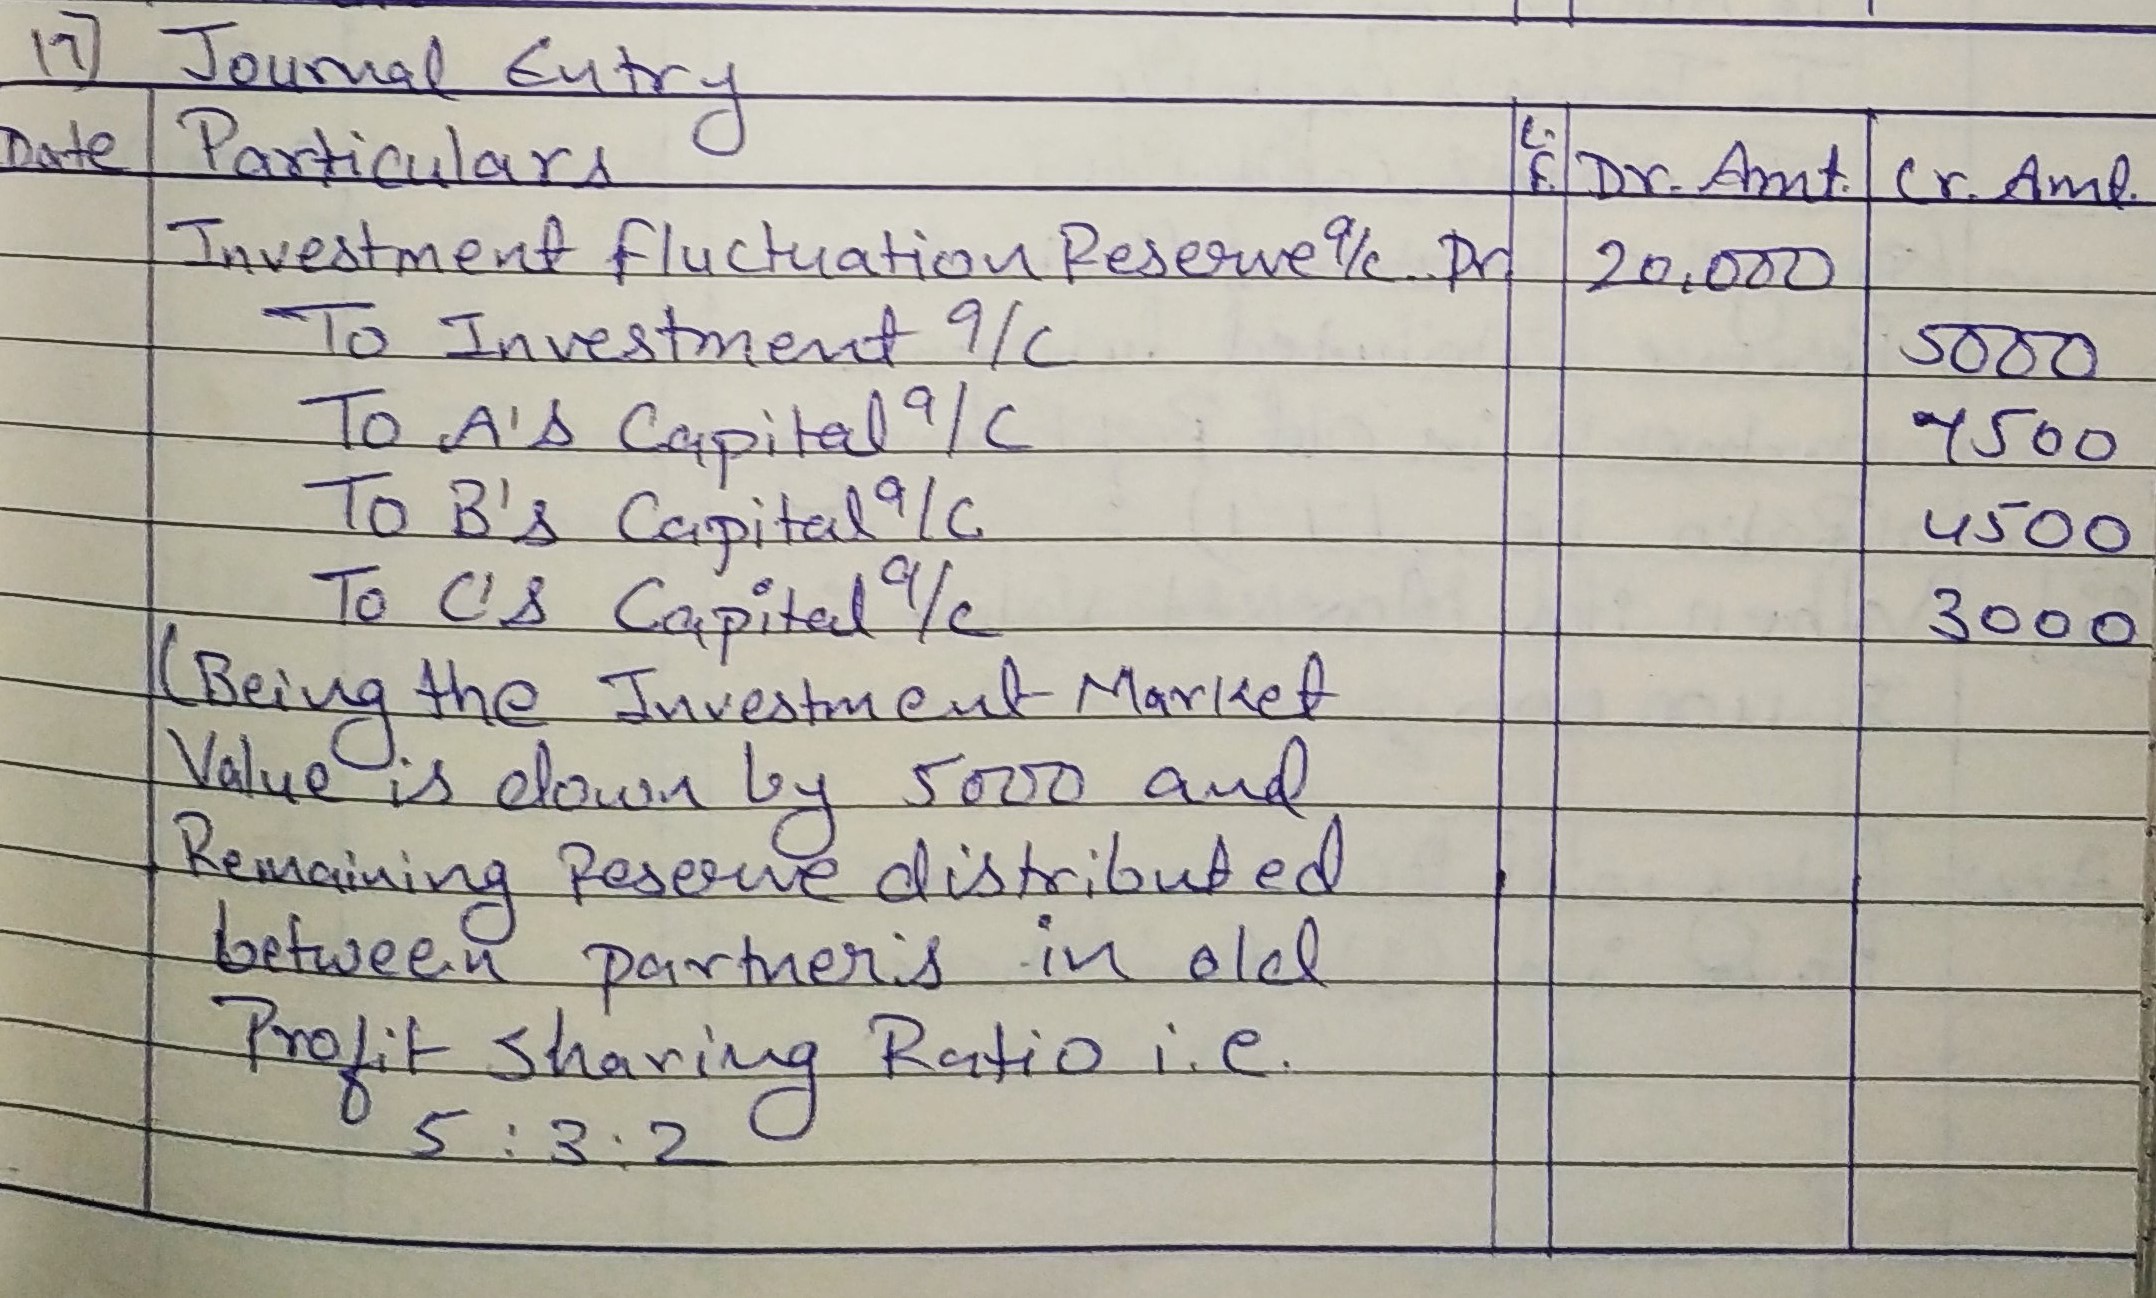 17] Journal Entry
Date Particulars L.F. Dr. Amt. Cr. Amt.
Investment Fluctuation Reserve a/c Dr 20,000
To Investment a/c 5000
To A's Capital a/c 7500
To B's Capital a/c 4500
To C's Capital a/c 3000
(Being the Investment Market
Value is down by 5000 and
Remaining Reserve distributed
between partner's in old
Profit Sharing Ratio i.e.
5:3:2